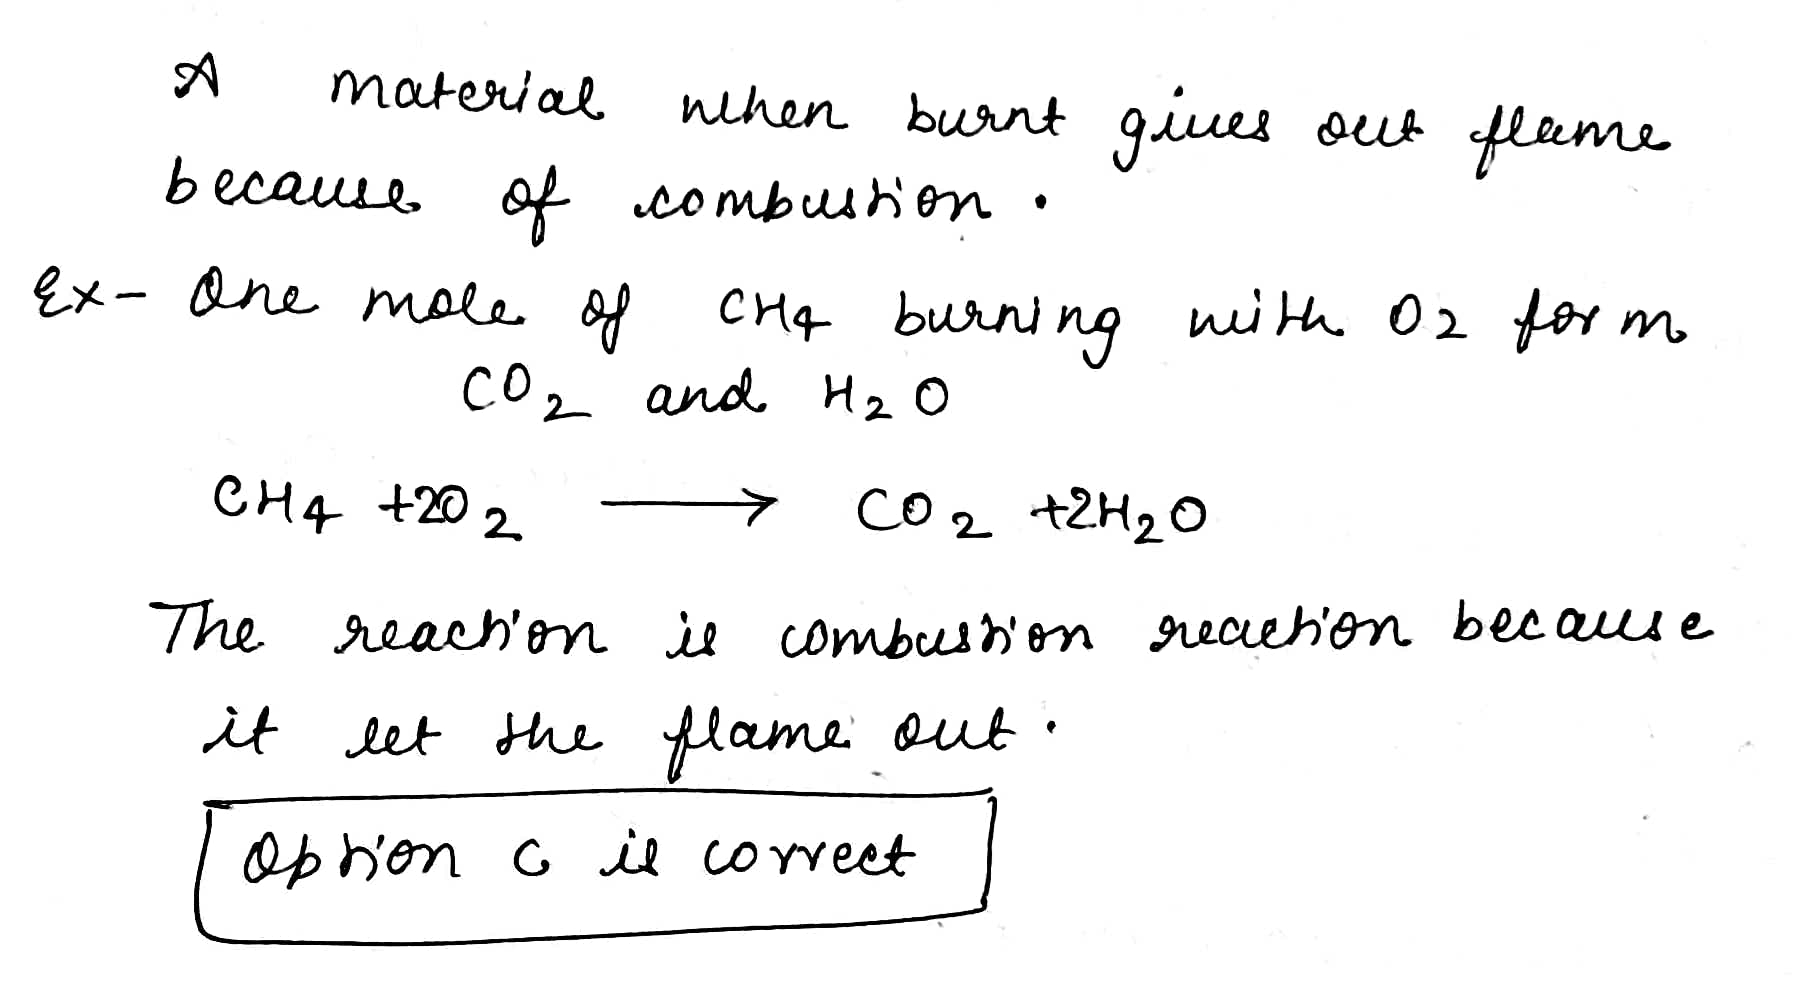 A material when burnt gives out flame
because of combustion.
Ex- One mole of CH4 burning with O2 form
CO2 and H2O
CH4 +2O2 ⟶ CO2 +2H2O
The reaction is combustion reaction because
it let the flame out.
Option C is correct